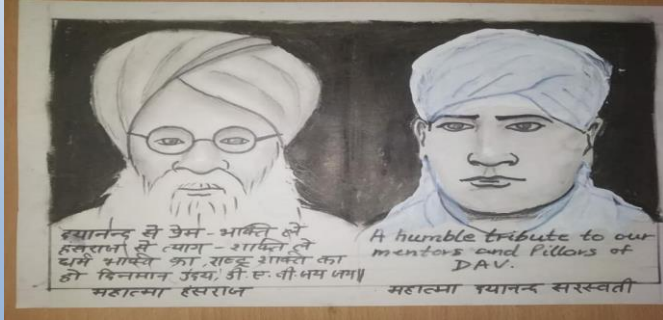 दयानन्द से प्रेम-भक्ति ले
हंसराज से त्याग-शक्ति ले
धर्म भक्ति का, राष्ट्र शक्ति का
हो दिनमान उदय, डी.ए.वी. जय जय॥
महात्मा हंसराज
A humble tribute to our
mentors and Pillors of
DAV.
महात्मा दयानन्द सरस्वती